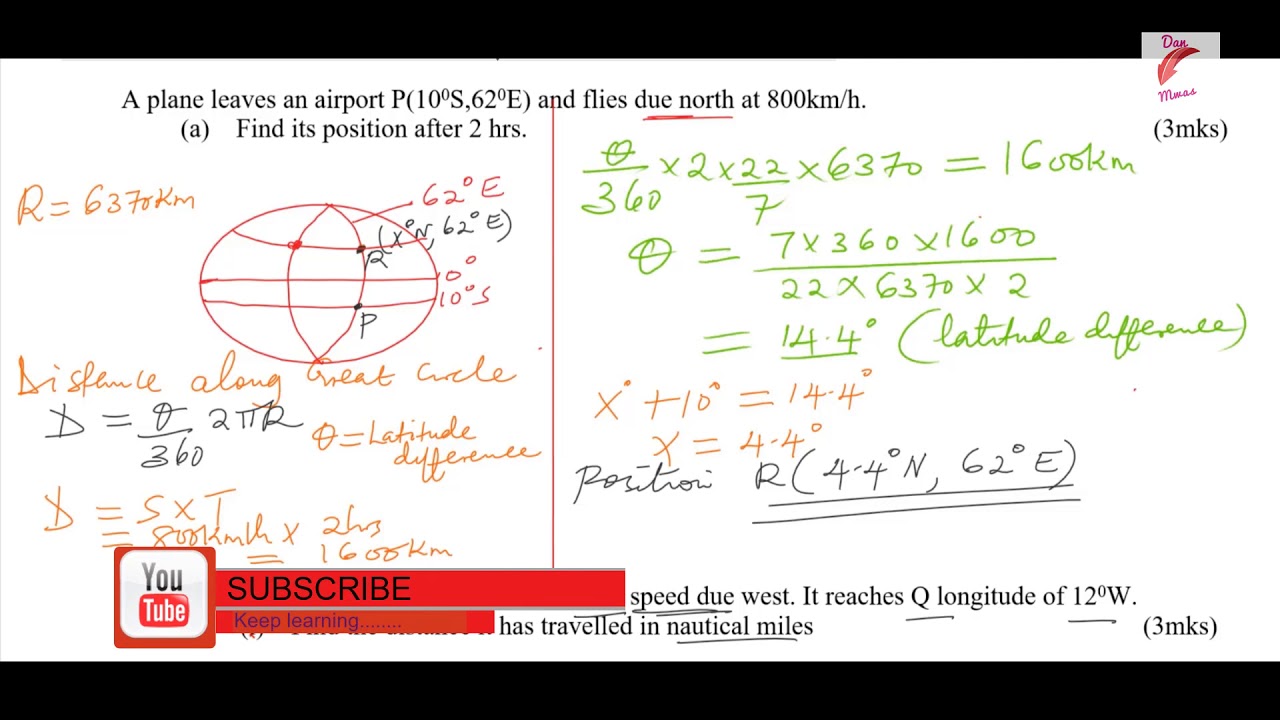 Dan
Mwas
A plane leaves an airport P(10⁰S,62⁰E) and flies due north at 800km/h.
(a) Find its position after 2 hrs. (3mks)
R = 6370km
62°E
(x°N, 62°E)
R
0°
10°S
P
Distance along Great Circle
D = θ/360 2πR
θ = Latitude difference
D = S x T
= 800km/h x 2hrs
= 1600km
θ/360 × 2 × 22/7 × 6370 = 1600km
θ = 7×360×1600 / 22×6370×2
= 14.4° (latitude difference)
x° + 10° = 14.4°
x = 4.4°
Position R(4.4°N, 62°E)
You
Tube
SUBSCRIBE
Keep learning........
speed due west. It reaches Q longitude of 12⁰W.
has travelled in nautical miles (3mks)